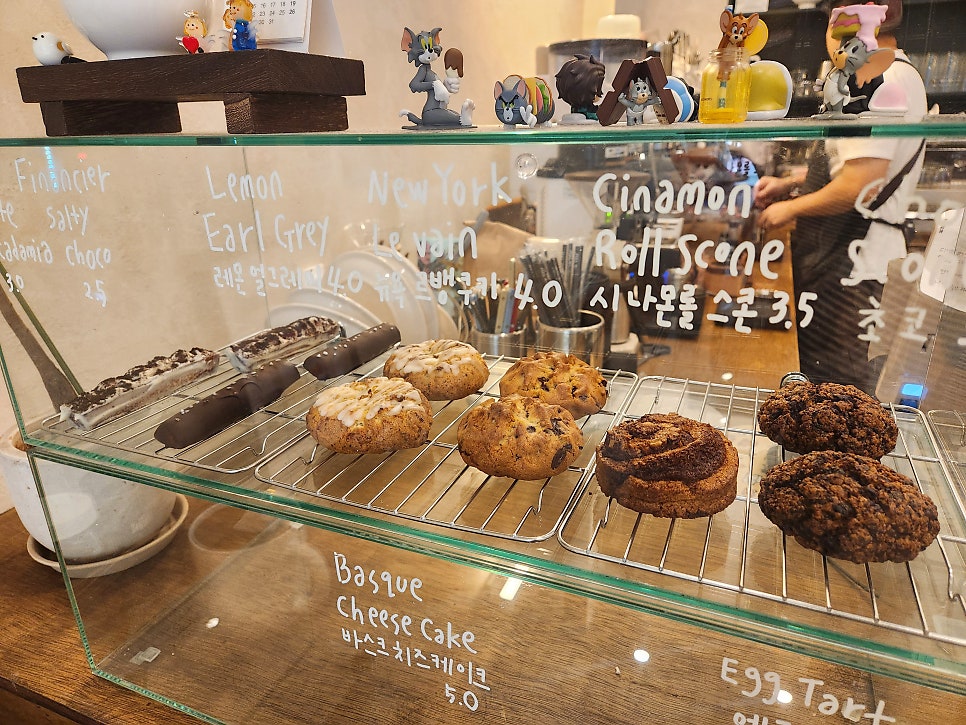 Financier
salty
Choco
3.0 2.5
Lemon
Earl Grey
레몬 얼그레이 4.0
New York
Levain
뉴욕 르뱅쿠키 4.0
Cinamon
Roll Scone
시나몬롤 스콘 3.5
초코
Basque
Cheese Cake
바스크치즈케이크
5.0
Egg Tart